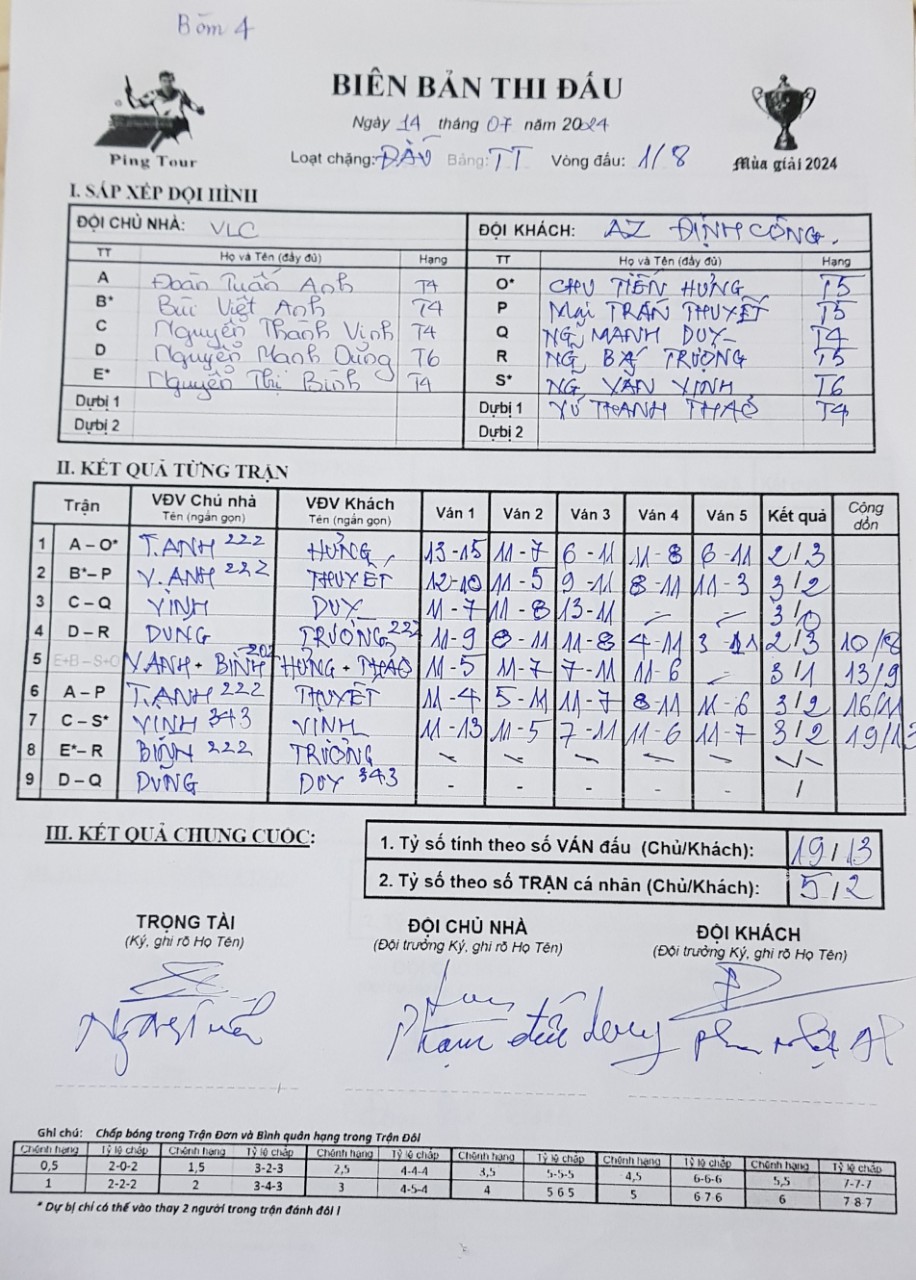 Bàn 4
BIÊN BẢN THI ĐẤU
Ngày 14 tháng 07 năm 2024
Ping Tour
Loạt chặng: ĐẤU Bảng: TT Vòng đấu: 1/8
Mùa giải 2024
I. SẮP XẾP ĐỘI HÌNH
ĐỘI CHỦ NHÀ: VLC ĐỘI KHÁCH: AZ ĐỊNH CÔNG.
TT Họ và Tên (đầy đủ) Hạng TT Họ và Tên (đầy đủ) Hạng
A Đoàn Tuấn Anh T4 O* CHU TIẾN HƯNG T5
B* Bùi Việt Anh T4 P Mai TRẦN THUYẾT T5
C Nguyễn Thành Vinh T4 Q NG MẠNH DUY T4
D Nguyễn Mạnh Dũng T6 R NG BÁ TRƯỞNG T5
E* Nguyễn Thị Bình T4 S* NG VĂN VINH T6
Dự bị 1 Dự bị 1 VŨ THANH THẢO T4
Dự bị 2 Dự bị 2
II. KẾT QUẢ TỪNG TRẬN
Trận VĐV Chủ nhà Tên (ngắn gọn) VĐV Khách Tên (ngắn gọn) Ván 1 Ván 2 Ván 3 Ván 4 Ván 5 Kết quả Cộng dồn
1 A – O* T.ANH 222 HƯNG 13-15 11-7 6-11 11-8 6-11 2/3
2 B* – P V.ANH 222 THUYẾT 12-10 11-5 9-11 8-11 11-3 3/2
3 C – Q VINH DUY 11-7 11-8 13-11 - - 3/0
4 D – R DUNG TRƯỞNG 222 11-9 8-11 11-8 4-11 3-11 2/3 10/8
5 E+B – S+O V.ANH + BÌNH 202 HƯNG + THẢO 11-5 11-7 7-11 11-6 - 3/1 13/9
6 A – P T.ANH 222 THUYẾT 11-4 5-11 11-7 8-11 11-6 3/2 16/11
7 C – S* VINH 343 VINH 11-13 11-5 7-11 11-6 11-7 3/2 19/13
8 E* – R BÌNH 222 TRƯỞNG - - - - - -/-
9 D – Q DUNG DUY 343 - - - - - /
III. KẾT QUẢ CHUNG CUỘC:
1. Tỷ số tính theo số VÁN đấu (Chủ/Khách): 19/13
2. Tỷ số theo số TRẬN cá nhân (Chủ/Khách): 5/2
TRỌNG TÀI ĐỘI CHỦ NHÀ ĐỘI KHÁCH
(Ký, ghi rõ Họ Tên) (Đội trưởng Ký, ghi rõ Họ Tên) (Đội trưởng Ký, ghi rõ Họ Tên)
Phạm đức
Ghi chú: Chấp bóng trong Trận Đơn và Bình quân hạng trong Trận Đôi
Chênh hạng Tỷ lệ chấp Chênh hạng Tỷ lệ chấp Chênh hạng Tỷ lệ chấp Chênh hạng Tỷ lệ chấp Chênh hạng Tỷ lệ chấp Chênh hạng Tỷ lệ chấp
0,5 2-0-2 1,5 3-2-3 2,5 4-4-4 3,5 5-5-5 4,5 6-6-6 5,5 7-7-7
1 2-2-2 2 3-4-3 3 4-5-4 4 5 6 5 5 6 7 6 6 7 8 7
* Dự bị chỉ có thể vào thay 2 người trong trận đánh đôi !